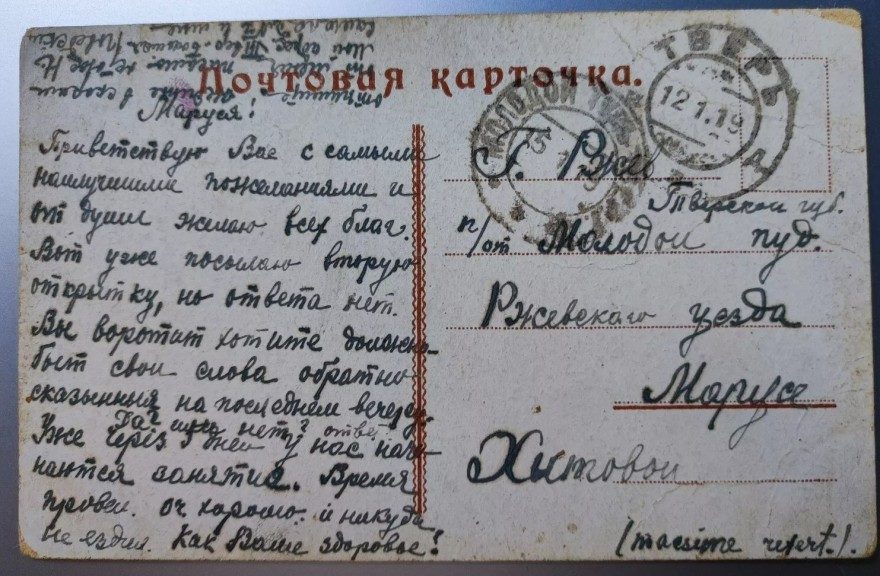 Почтовая карточка.
Маруся!
Приветствую Вас с самыми
наилучшими пожеланиями и
от души желаю всех благ.
Вот уже посылаю вторую
открытку, но ответа нет.
Вы воротит хотите должно
быт свои слова обратно
сказынныя на последнем вечере.
Да? или нет? ответ
Уже через 5 дней у нас начи-
наются занятие. Время
провел. оч. хорошо. и никуда
не ездил. Как Ваше здоровье!
Мой адрес Твер.
ТВЕРЬ
12.1.19
МОЛОДОЙ ТУД
Г. Ржев
Тверской губ.
п/от Молодой туд.
Ржевскаго уезда
Марусе
Хитовой